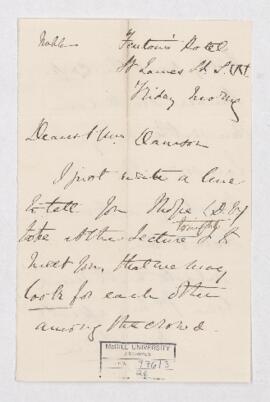 Noble
Fenton's Hotel
St James St. S.W.
Friday Morng
Dearest Mrs Dawson
I just write a line
to tell you I hope (D.V.)
to be at the Lecture tonight &
meet you, that we may
look for each other
among the crowd.
McGILL UNIVERSITY
ARCHIVES
ACC.